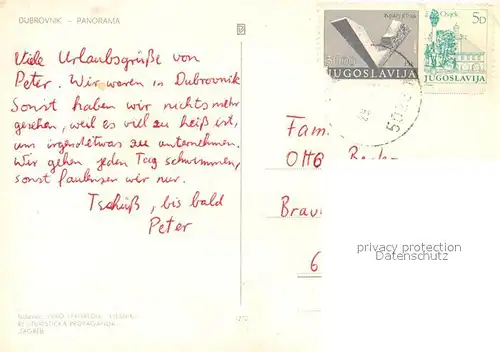 DUBROVNIK — PANORAMA
Viele Urlaubsgrüße von
Peter. Wir waren in Dubrovnik
Sonst haben wir nichts mehr
gesehen, weil es viel zu heiß ist,
um irgendetwas zu unternehmen.
Wir gehen jeden Tag schwimmen,
sonst faulenzen wir nur.
Tschüß, bis bald
Peter
JUGOSLAVIJA
Osijek
5D
JUGOSLAVIJA
Fam
Brau
6
privacy protection
Datenschutz
TURISTIČKA PROPAGANDA
ZAGREB